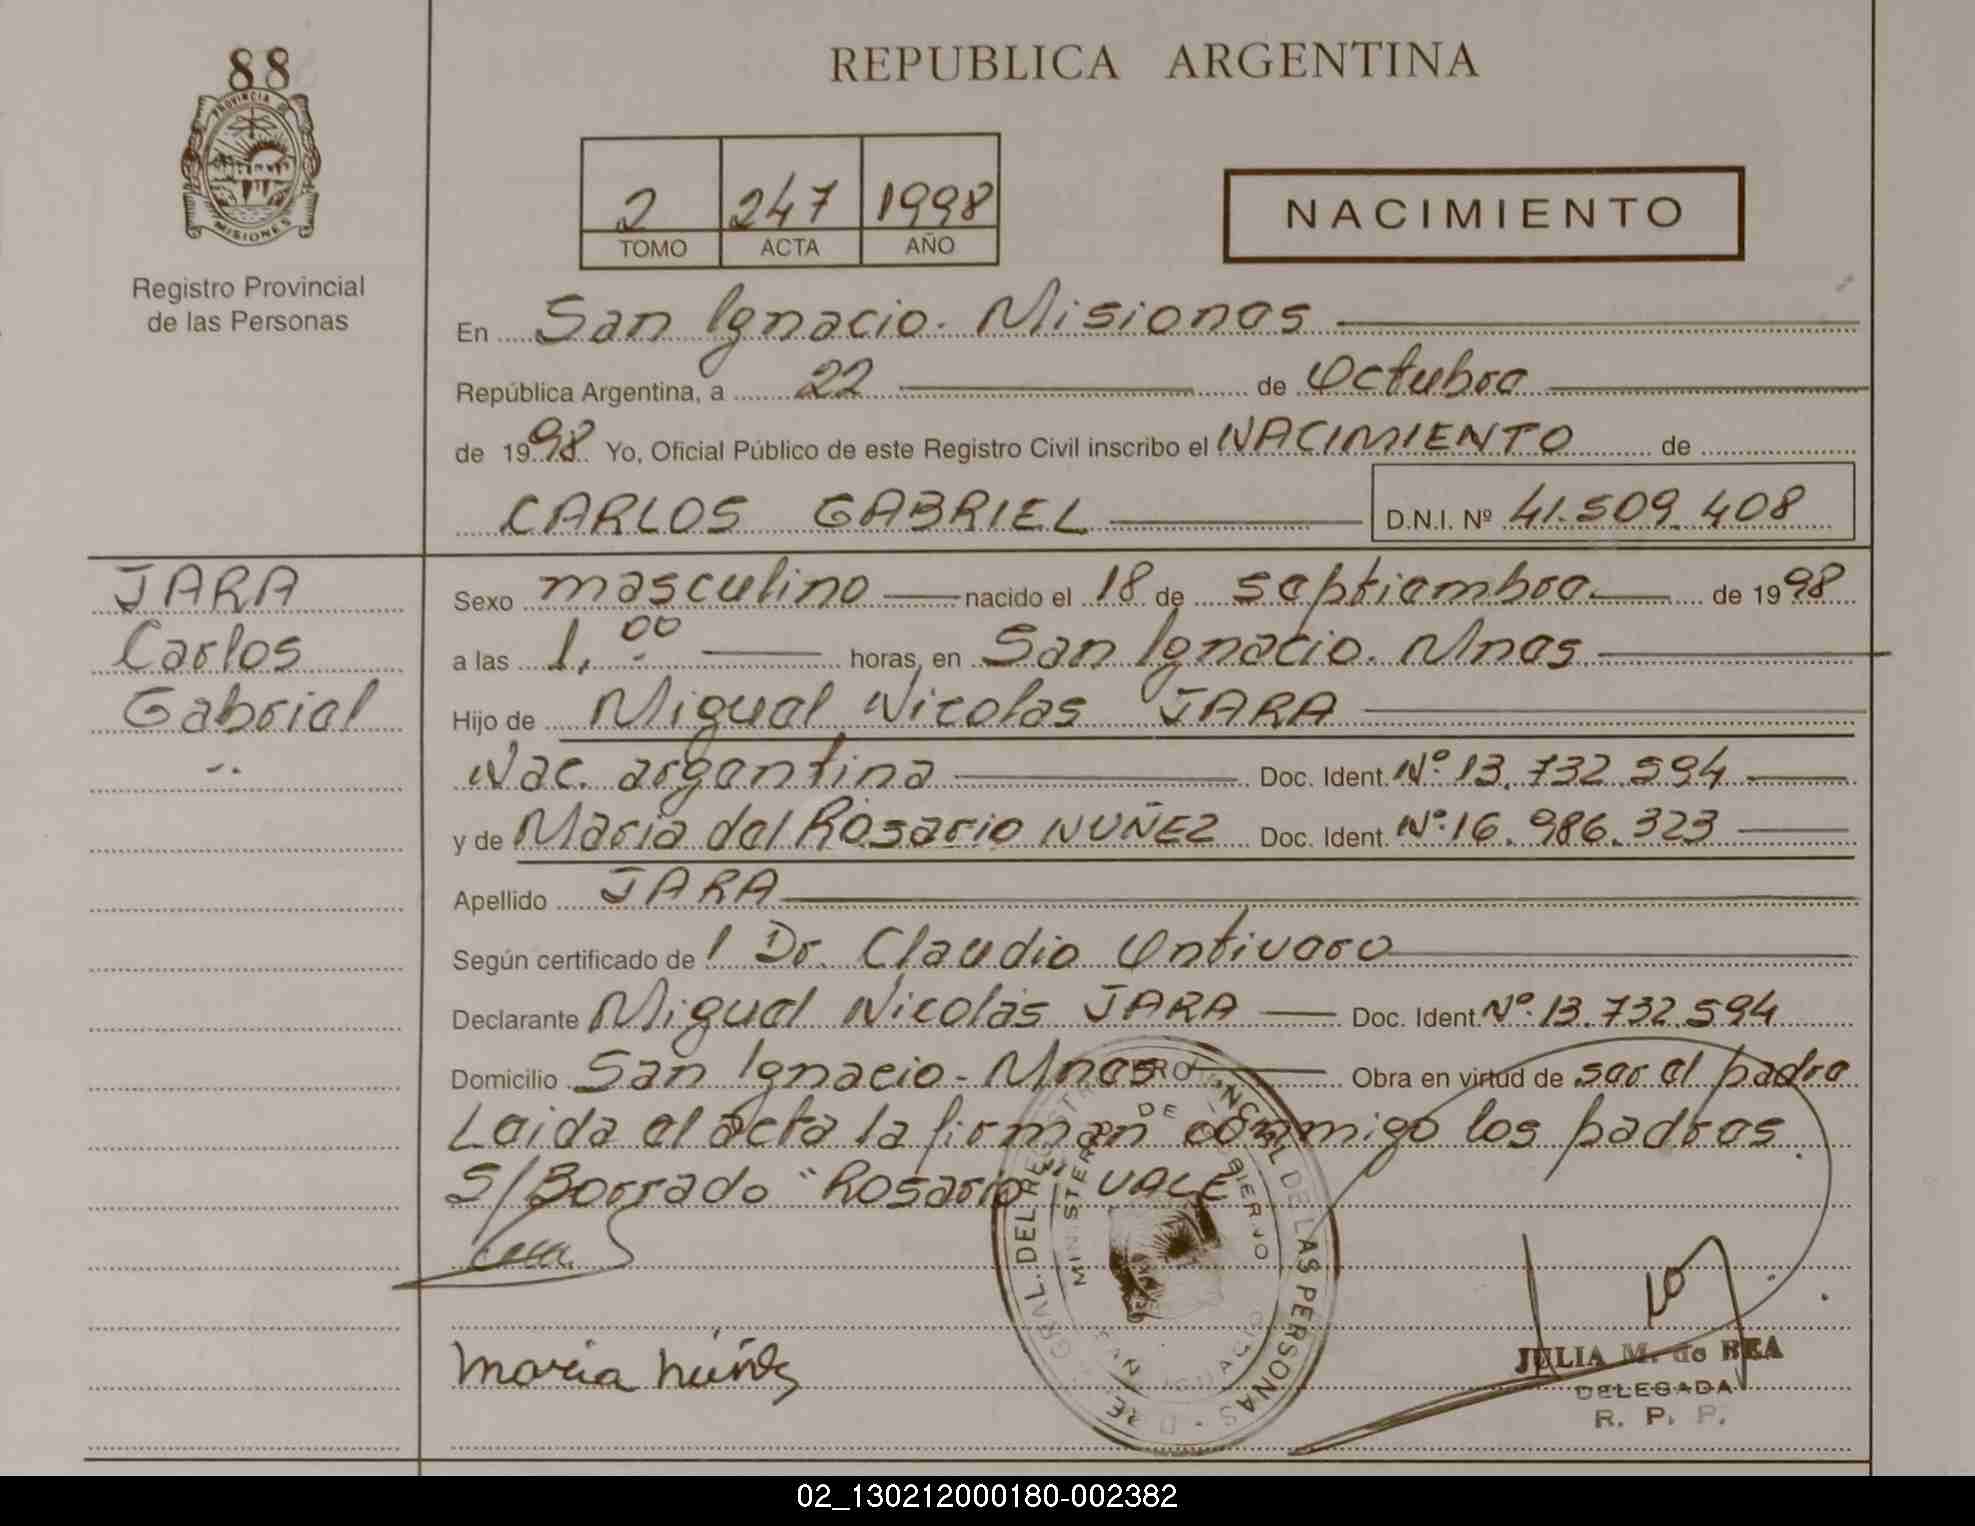 88
REPUBLICA ARGENTINA
PROVINCIA DE
MISIONES
Registro Provincial
de las Personas
2 247 1998
TOMO ACTA AÑO
NACIMIENTO
En San Ignacio. Misiones
República Argentina, a 22 de Octubre
de 1998 Yo, Oficial Público de este Registro Civil inscribo el NACIMIENTO de
CARLOS GABRIEL D.N.I. Nº 41.509.408
JARA
Carlos
Gabriel
Sexo masculino nacido el 18 de septiembre de 1998
a las 1,00 horas, en San Ignacio. Mnes
Hijo de Miguel Nicolas JARA
Nac. argentina Doc. Ident. Nº 13.732.594
y de María del Rosario NUÑEZ Doc. Ident. Nº 16.986.323
Apellido JARA
Según certificado de l Dr. Claudio Ontivero
Declarante Miguel Nicolás JARA Doc. Ident. Nº 13.732.594
Domicilio San Ignacio - Mnes Obra en virtud de ser el padre
Leida el acta la firman conmigo los padres
S/Borrado "Rosario" VALE
maria núñez
GRAL. DEL REGISTRO PROVINCIAL DE LAS PERSONAS
MINISTERIO DE GOBIERNO
SAN IGNACIO
JULIA M. de REA
DELEGADA
R. P. P.
02_130212000180-002382